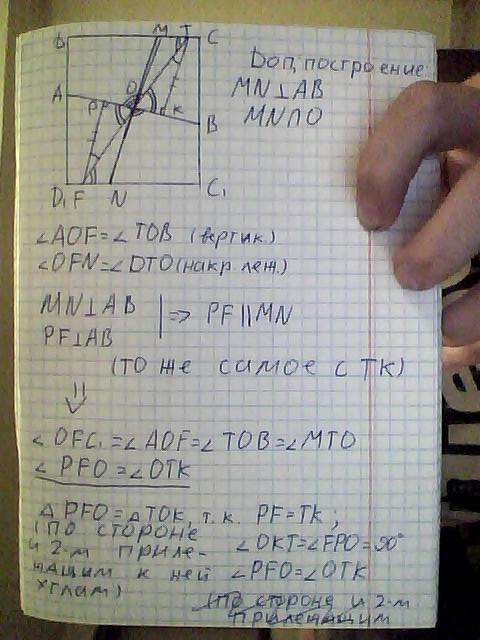 D M T C
A P O K B
D₁ F N C₁
Доп, построение:
MN⊥AB
MN∩O
∠AOF=∠TOB (вертик.)
∠OFN=∠DTO (накр леж.)
MN⊥AB
PF⊥AB
=> PF||MN
(то же самое с TK)
⇓
∠OFC₁=∠AOF=∠TOB=∠MTO
∠PFO=∠OTK
△PFO=△TOK, т.к. PF=TK;
(по стороне
и 2-м приле-
жащим к ней
углам)
∠OKT=∠FPO=90°
∠PFO=∠OTK
(по стороне и 2-м
прилежащим